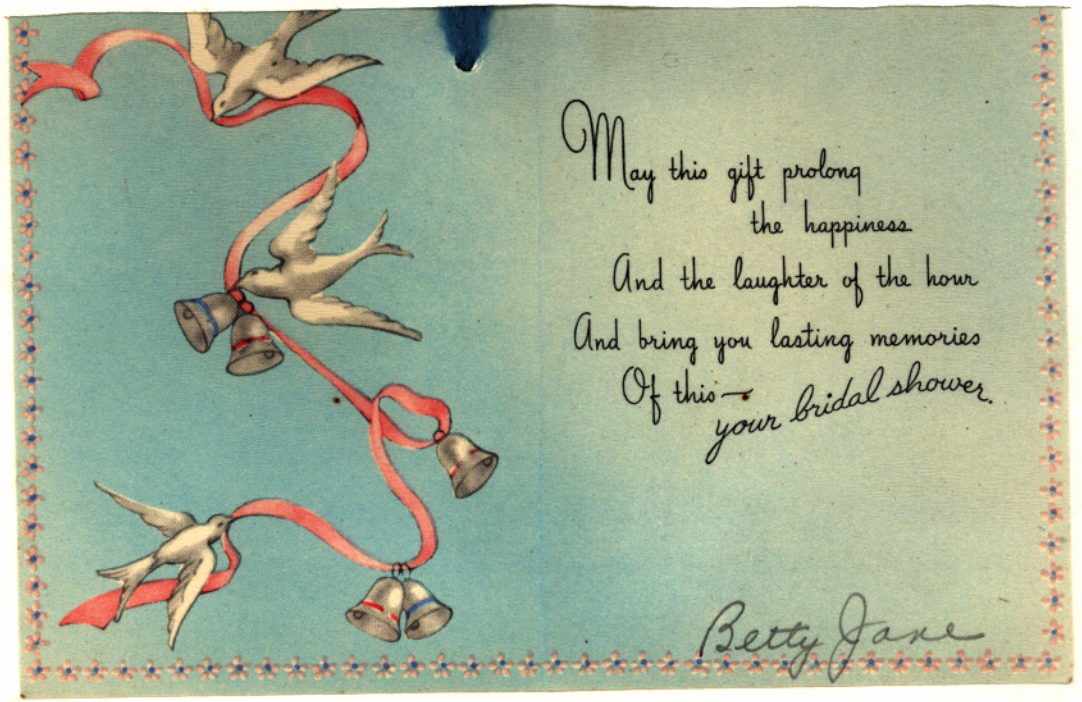 May this gift prolong
the happiness
And the laughter of the hour
And bring you lasting memories
Of this— your bridal shower.
Betty Jane